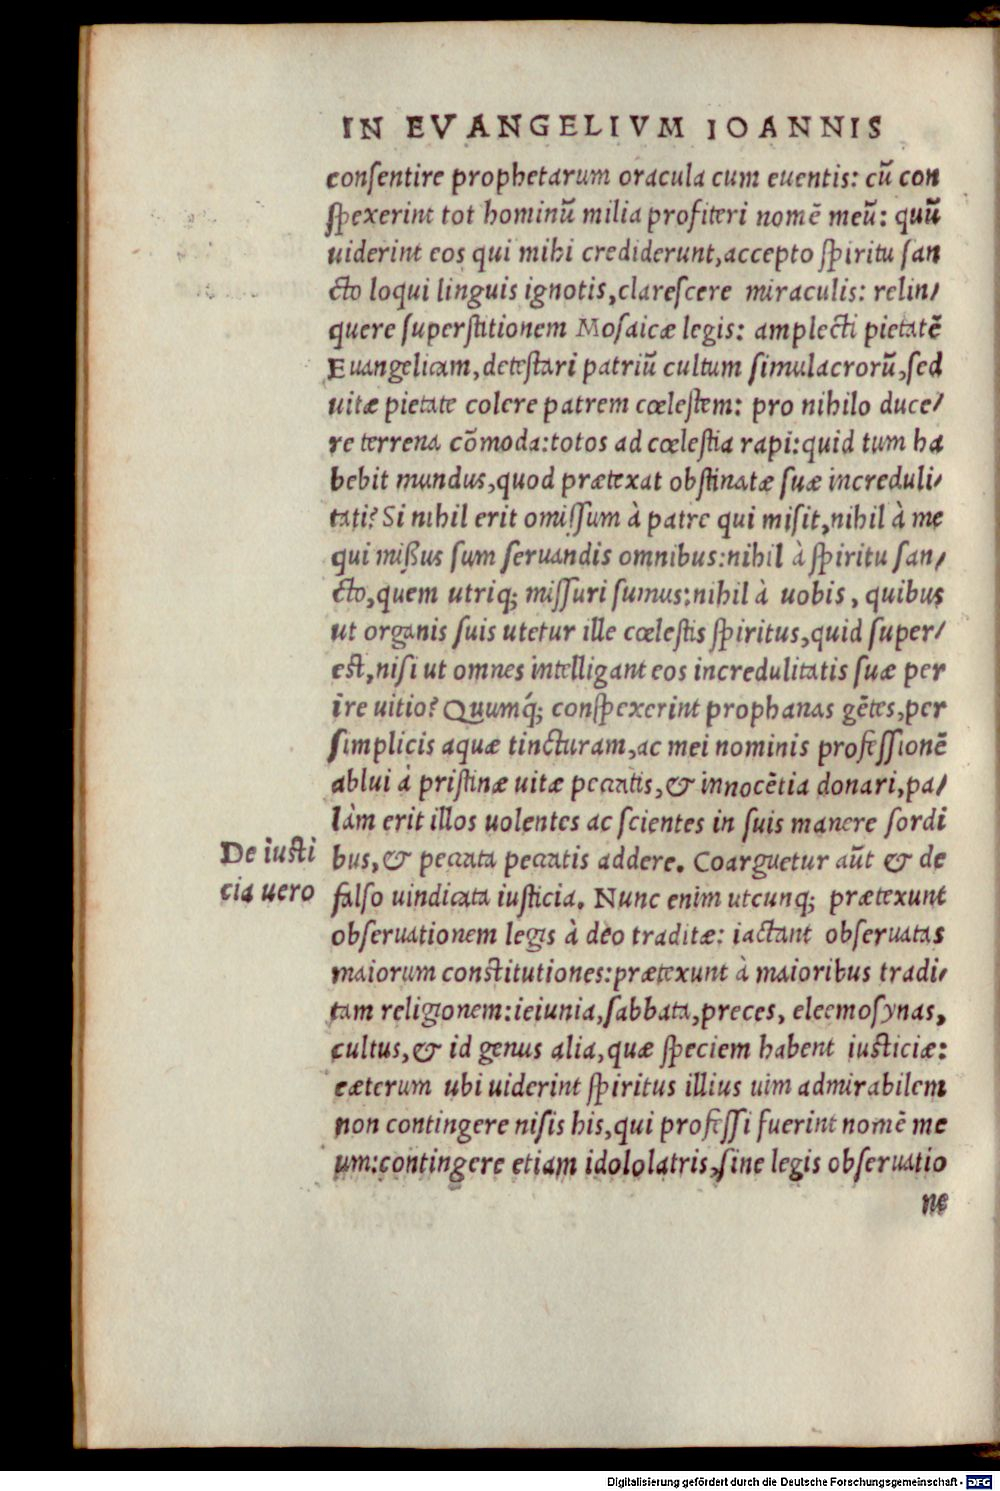 IN EVANGELIVM IOANNIS
conſentire prophetarum oracula cum euentis: cũ con
ſpexerint tot hominũ milia profiteri nomẽ meũ: quũ
uiderint eos qui mihi crediderunt,accepto ſpiritu ſan
cto loqui linguis ignotis,clareſcere miraculis: relin/
quere ſuperſtitionem Moſaicæ legis: amplecti pietatẽ
Euangelicam,deteſtari patriũ cultum ſimulacrorũ,ſed
uitæ pietate colere patrem cœleſtem: pro nihilo duce/
re terrena cõmoda:totos ad cœleſtia rapi:quid tum ha
bebit mundus,quod prætexat obſtinatæ ſuæ increduli/
tati? Si nihil erit omiſſum à patre qui miſit,nihil à me
qui mißus ſum ſeruandis omnibus:nihil à ſpiritu ſan/
cto,quem utriq; miſſuri ſumus:nihil à uobis, quibus
ut organis ſuis utetur ille cœleſtis ſpiritus,quid ſuper/
eſt,niſi ut omnes intelligant eos incredulitatis ſuæ per
ire uitio? Quumq́; conſpexerint prophanas gẽtes,per
ſimplicis aquæ tincturam,ac mei nominis profeſſionẽ
ablui à priſtinæ uitæ peccatis,& innocẽtia donari,pa/
làm erit illos uolentes ac ſcientes in ſuis manere ſordi
De iuſti
cia uero
bus,& peccata peccatis addere. Coarguetur aũt & de
falſo uindicata iuſticia. Nunc enim utcunq; prætexunt
obſeruationem legis à deo traditæ: iactant obſeruatas
maiorum conſtitutiones:prætexunt à maioribus tradi/
tam religionem:ieiunia,ſabbata,preces, eleemoſynas,
cultus,& id genus alia,quæ ſpeciem habent iuſticiæ:
cæterum ubi uiderint ſpiritus illius uim admirabilem
non contingere niſis his,qui profeſſi fuerint nomẽ me
um:contingere etiam idololatris,ſine legis obſeruatio
ne
Digitalisierung gefördert durch die Deutsche Forschungsgemeinschaft - DFG